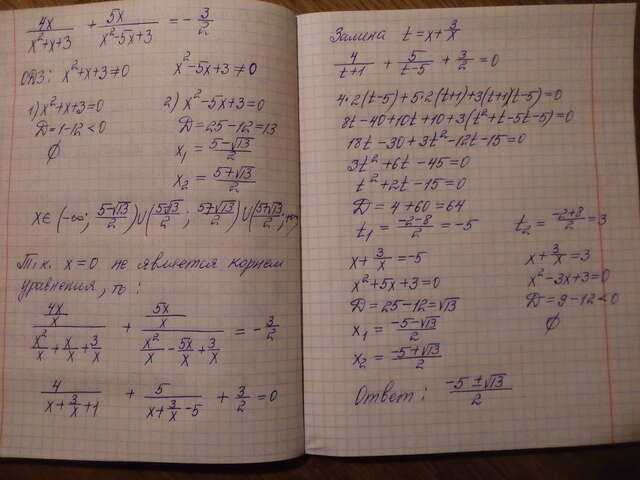 4x/(x²+x+3) + 5x/(x²-5x+3) = -3/2
ОДЗ: x²+x+3≠0 x²-5x+3≠0
1) x²+x+3=0 2) x²-5x+3=0
D=1-12<0 D=25-12=13
∅ x₁ = (5-√13)/2
x₂ = (5+√13)/2
x∈(-∞; (5-√13)/2)∪((5-√13)/2; (5+√13)/2)∪((5+√13)/2; +∞)
Т.к. x=0 не является корнем
уравнения, то:
(4x/x)/(x²/x + x/x + 3/x) + (5x/x)/(x²/x - 5x/x + 3/x) = -3/2
4/(x+3/x+1) + 5/(x+3/x-5) + 3/2 = 0
Замена t = x+3/x
4/(t+1) + 5/(t-5) + 3/2 = 0
4·2(t-5)+5·2(t+1)+3(t+1)(t-5)=0
8t-40+10t+10+3(t²+t-5t-5)=0
18t-30+3t²-12t-15=0
3t²+6t-45=0
t²+2t-15=0
D=4+60=64
t₁ = (-2-8)/2 = -5 t₂ = (-2+8)/2 = 3
x+3/x=-5 x+3/x=3
x²+5x+3=0 x²-3x+3=0
D=25-12=√13 D=9-12<0
x₁ = (-5-√13)/2 ∅
x₂ = (-5+√13)/2
Ответ: (-5±√13)/2